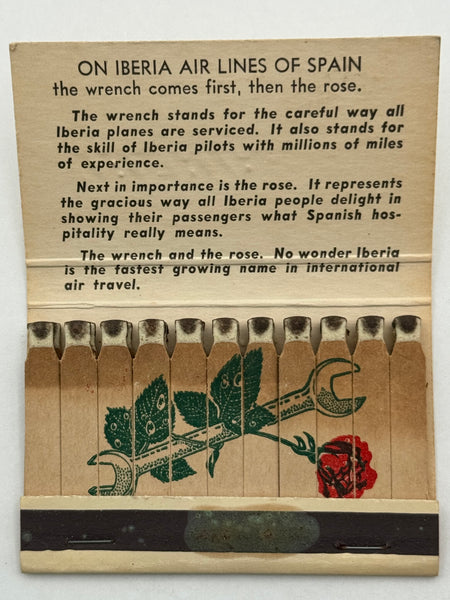 ON IBERIA AIR LINES OF SPAIN
the wrench comes first, then the rose.
The wrench stands for the careful way all
Iberia planes are serviced. It also stands for
the skill of Iberia pilots with millions of miles
of experience.
Next in importance is the rose. It represents
the gracious way all Iberia people delight in
showing their passengers what Spanish hos-
pitality really means.
The wrench and the rose. No wonder Iberia
is the fastest growing name in international
air travel.